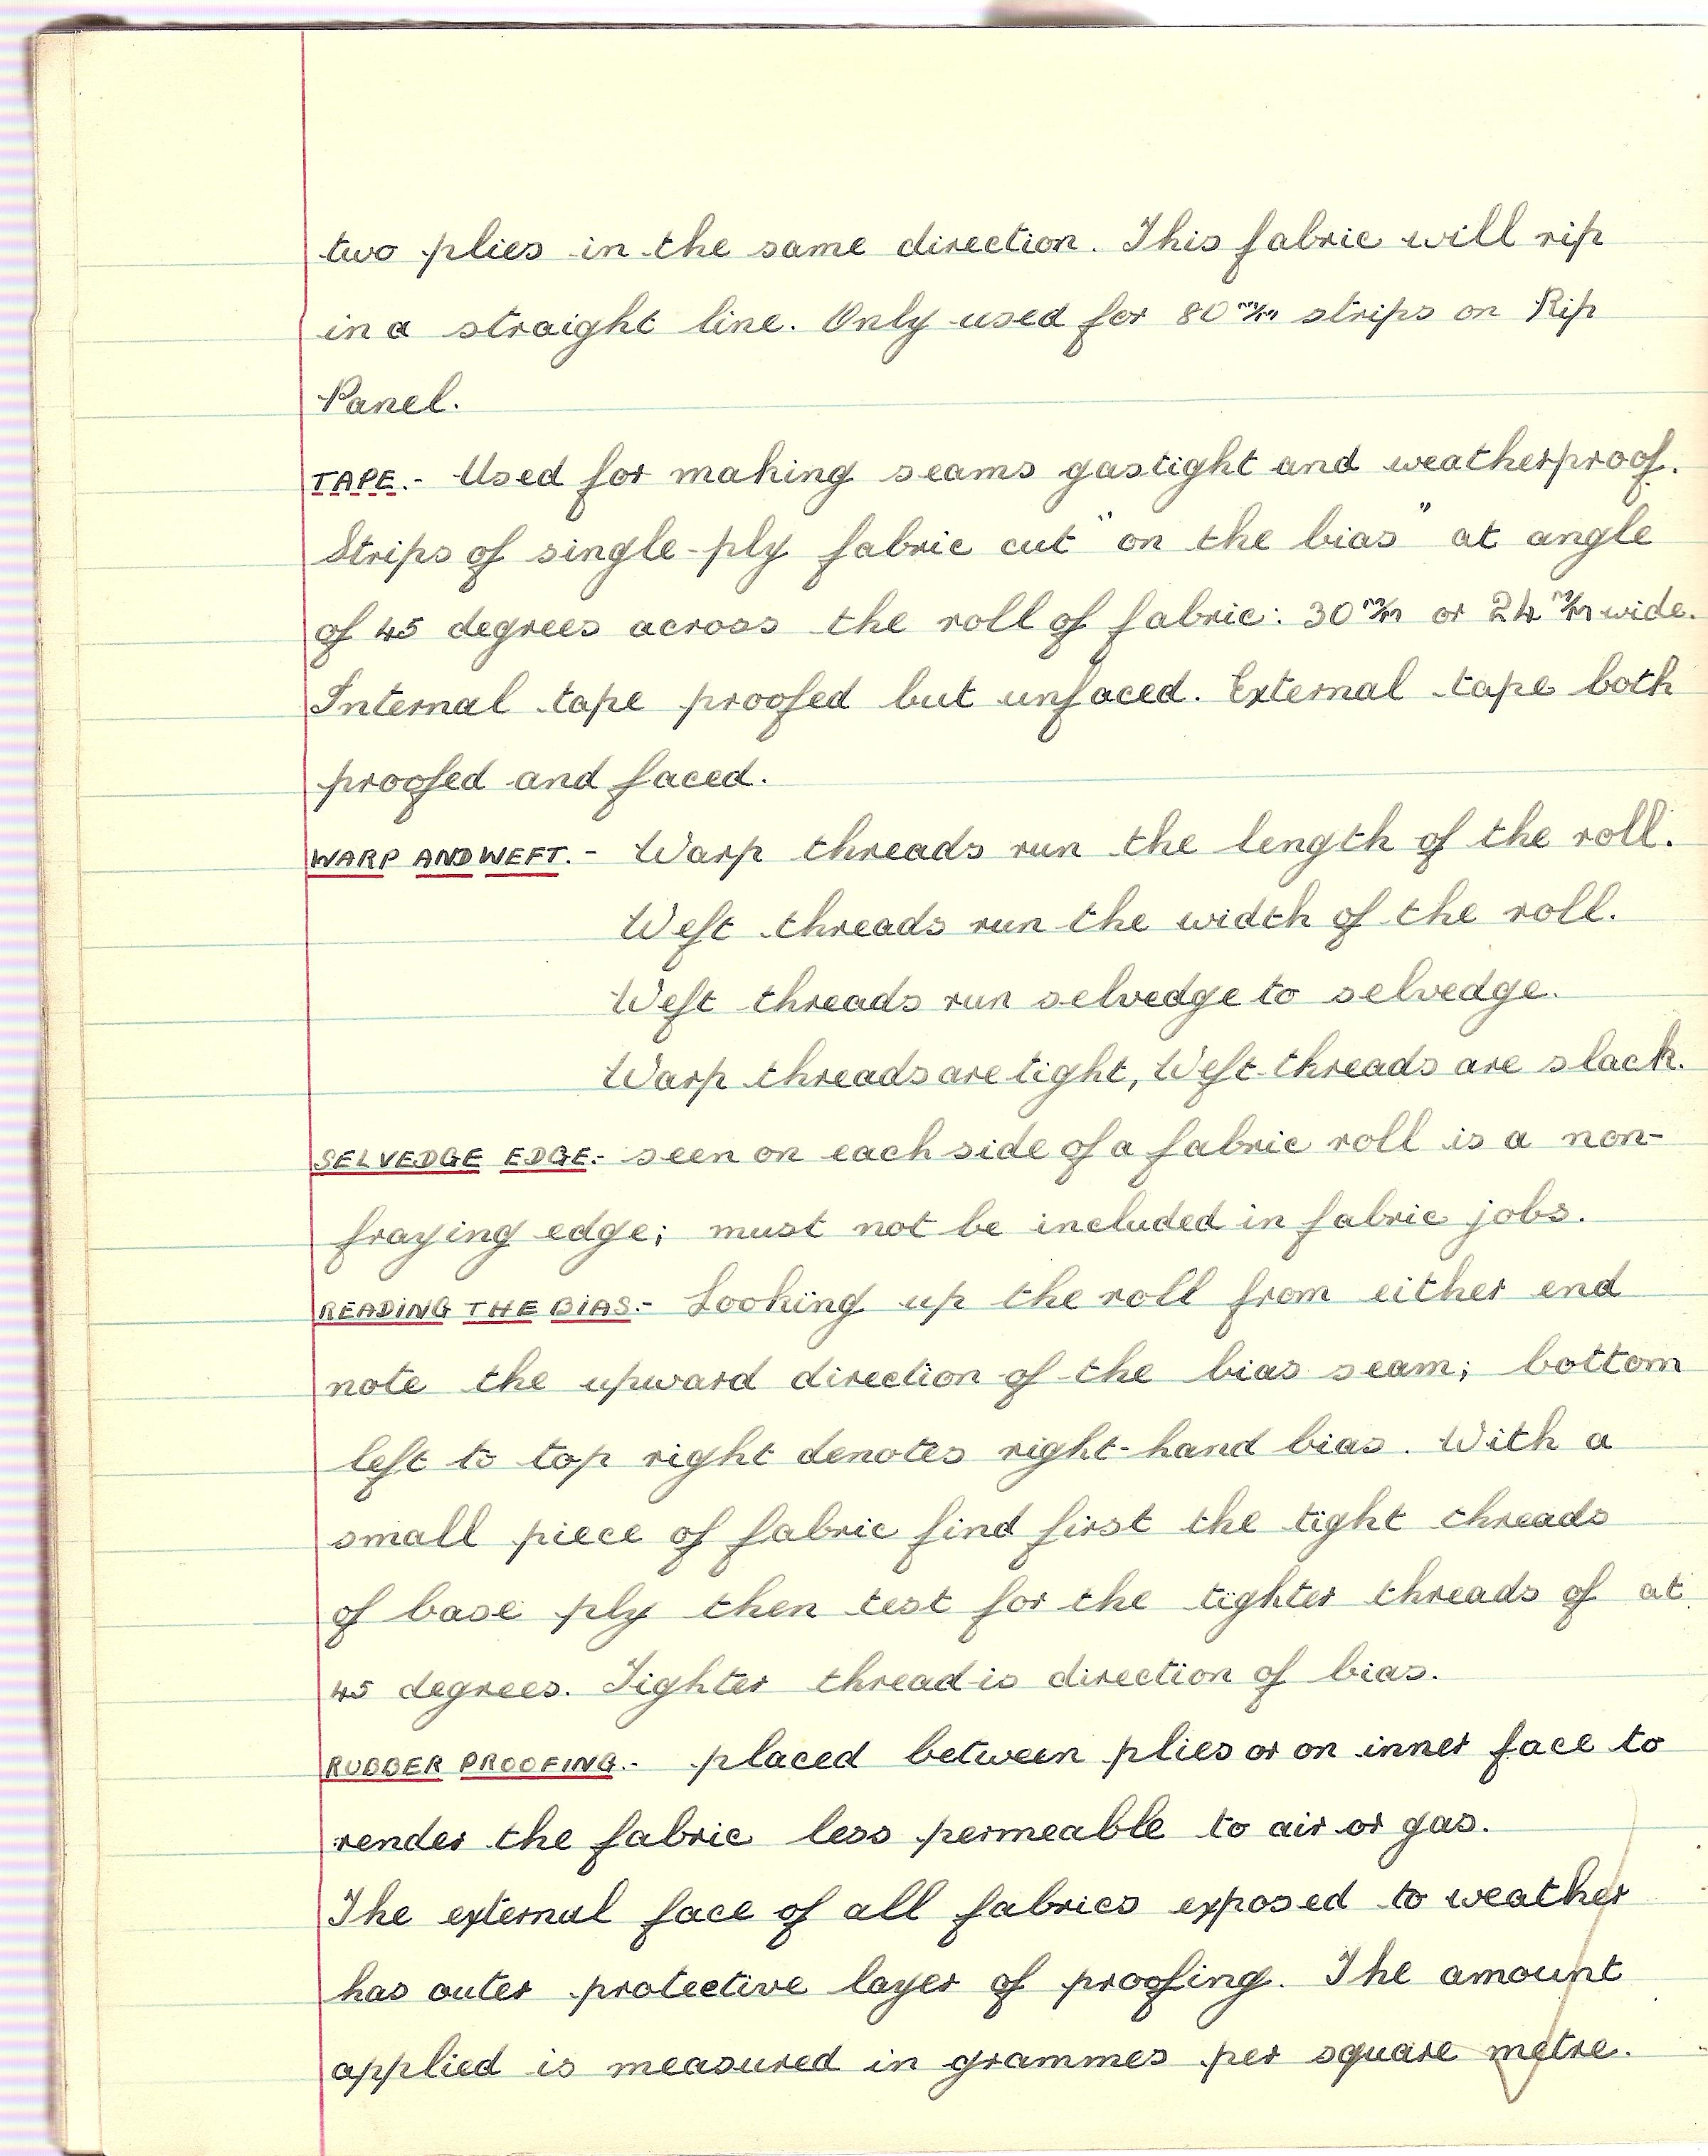 two plies in the same direction. This fabric will rip
in a straight line. Only used for 80 m/m strips on Rip
Panel.
TAPE.- Used for making seams gastight and weatherproof.
Strips of single-ply fabric cut "on the bias" at angle
of 45 degrees across the roll of fabric: 30 m/m or 24 m/m wide.
Internal tape proofed but unfaced. External tape both
proofed and faced.
WARP AND WEFT.- Warp threads run the length of the roll.
Weft threads run the width of the roll.
Weft threads run selvedge to selvedge.
Warp threads are tight, Weft threads are slack.
SELVEDGE EDGE:- seen on each side of a fabric roll is a non-
fraying edge; must not be included in fabric jobs.
READING THE BIAS.- Looking up the roll from either end
note the upward direction of the bias seam; bottom
left to top right denotes right-hand bias. With a
small piece of fabric find first the tight threads
of base ply then test for the tighter threads of at
45 degrees. Tighter thread is direction of bias.
RUBBER PROOFING.- placed between plies or on inner face to
render the fabric less permeable to air or gas.
The external face of all fabrics exposed to weather
has outer protective layer of proofing. The amount
applied is measured in grammes per square metre.